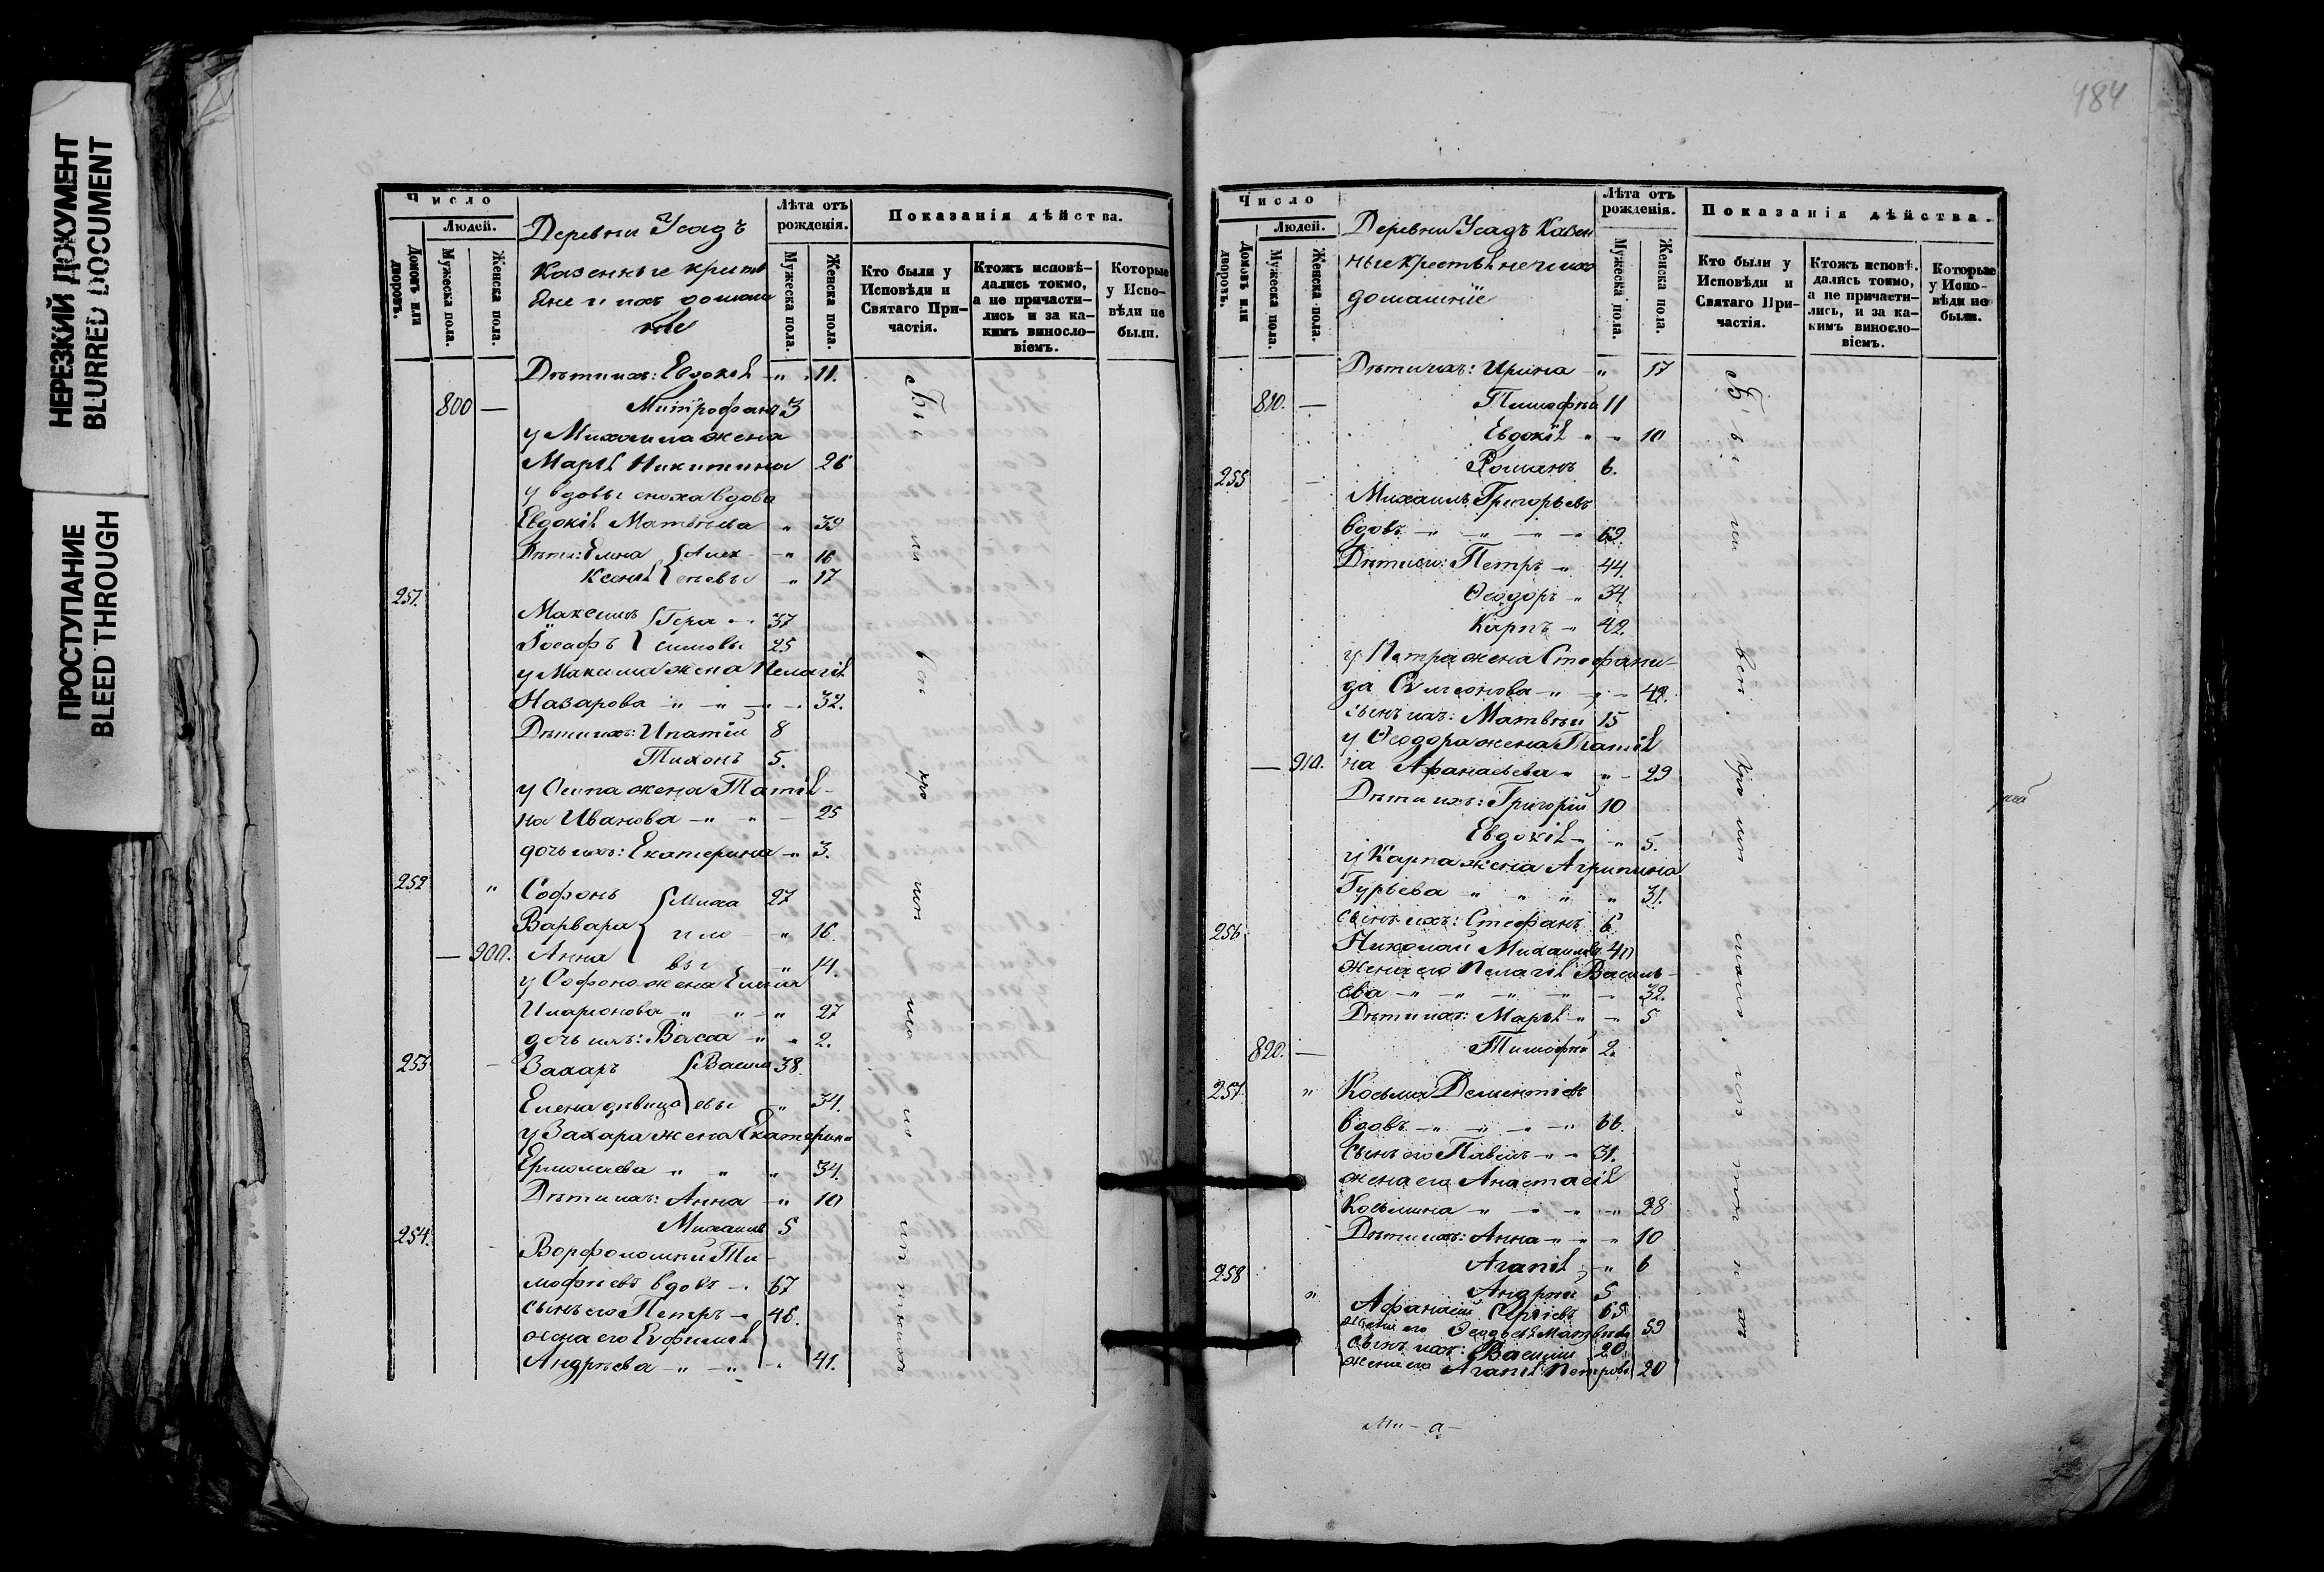 НЕРЕЗКИЙ ДОКУМЕНТ
BLURRED DOCUMENT
ПРОСТУПАНИЕ
BLEED THROUGH
Число
Людей.
Домовъ или дворовъ.
Мужеска пола.
Женска пола.
Деревни Усадъ
Казенные кресть
яне и ихъ домаш
ніе
Лѣта отъ рожденія.
Мужеска пола.
Женска пола.
Показанія дѣйства.
Кто были у Исповѣди и Святаго Причастія.
Ктожъ исповѣдались токмо, а не причастились и за какимъ винословіемъ.
Которые у Исповѣди не были.
Дѣти ихъ: Евдокія " 11.
800 — Митрофанъ 3
у Михаила жена
Марія Никитина 26
у вдовы сноха вдова
Евдокія Матвѣева " 39
Дѣти: Елена Алек " 16
Ксенія сѣевы " 17
251.
Максимъ Гера 37
Іосафъ симовы 25
у Максима жена Пелагія
Назарова " " 32.
Дѣти ихъ: Ипатій 8
Тихонъ 5.
у Осипа жена Татія-
на Иванова " " 25
дочь ихъ: Екатерина " 3.
252 " Софонъ Миха 27
Варвара ило " 16.
— 900. Анна вы " 14.
у Софона жена Елена
Иларионова " " " 27
дочь ихъ: Васса " " 2.
253 - Захаръ Василь 38.
Елена дѣвица евы " 34.
у Захара жена Екатерина
Ермолаева " " " 34.
Дѣти ихъ: Анна " 10
Михаилъ 5
254.
Ворфоломей Ти-
мофѣевъ вдовъ 67
сынъ его Петръ 46.
жена его Евфимія
Андрѣева " " 41.
484
Число
Людей.
Домовъ или дворовъ.
Мужеска пола.
Женска пола.
Деревни Усадъ Казен
ные крестьяне и ихъ
домашніе
Лѣта отъ рожденія.
Мужеска пола.
Женска пола.
Показанія дѣйства.
Кто были у Исповѣди и Святаго Причастія.
Ктожъ исповѣдались токмо, а не причастились, и за какимъ винословіемъ.
Которые у Исповѣди не были.
Дѣти ихъ: Ирина " 17
810. — Тимофѣй 11
Евдокія " " 10
Романъ 6.
255 -
Михаилъ Григорьевъ
вдовъ " " " " 69.
Дѣти его: Петръ " 44.
Ѳеодоръ " 34.
Карпъ " 42.
у Петра жена Стефани-
да Симеонова " " " 42.
сынъ ихъ: Матвѣй 15
у Ѳеодора жена Татія
— 910. на Афанасьева " " 29
Дѣти ихъ: Григорій 10
Евдокія " " 5.
у Карпа жена Агрипина
Гурьева " " " " 31.
сынъ ихъ: Стефанъ 6
256
Николай Михаиловъ 40
жена его Пелагія Василь-
ева " " " " " 32.
Дѣти ихъ: Марія " " 5
820. — Тимофѣй 2.
257 " Косьма Дементіевъ
вдовъ " " " " 66.
сынъ его Павелъ " " 31.
жена его Анастасія
Косьмина " " " " 28
Дѣти ихъ: Анна " " " 10
Агапія " 6
258
" Андрей 5
Афанасій Сергіевъ 65
жена его Ѳеодосія Матвѣева 59
сынъ ихъ: Василій 20
жена его Агапія Петрова 20